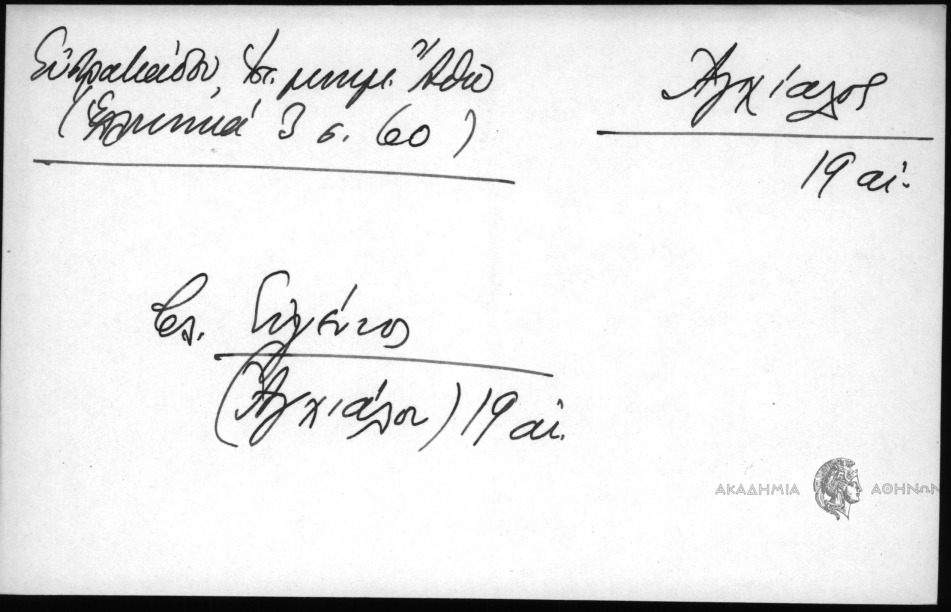 Εὐστρατιάδου, Ἱστ. μνημ. Ἄθω
(Ἑλληνικά 3 σ. 60)
Ἀγχίαλος
19 αἰ.
βλ.
(Ἀγχιάλου) 19 αἰ.
ΑΚΑΔΗΜΙΑ ΑΘΗΝΩΝ